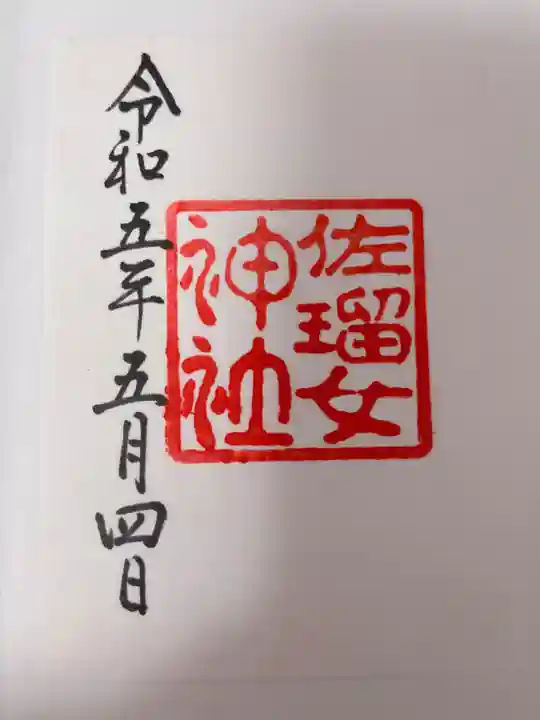 佐瑠女
神社
令和五年五月四日